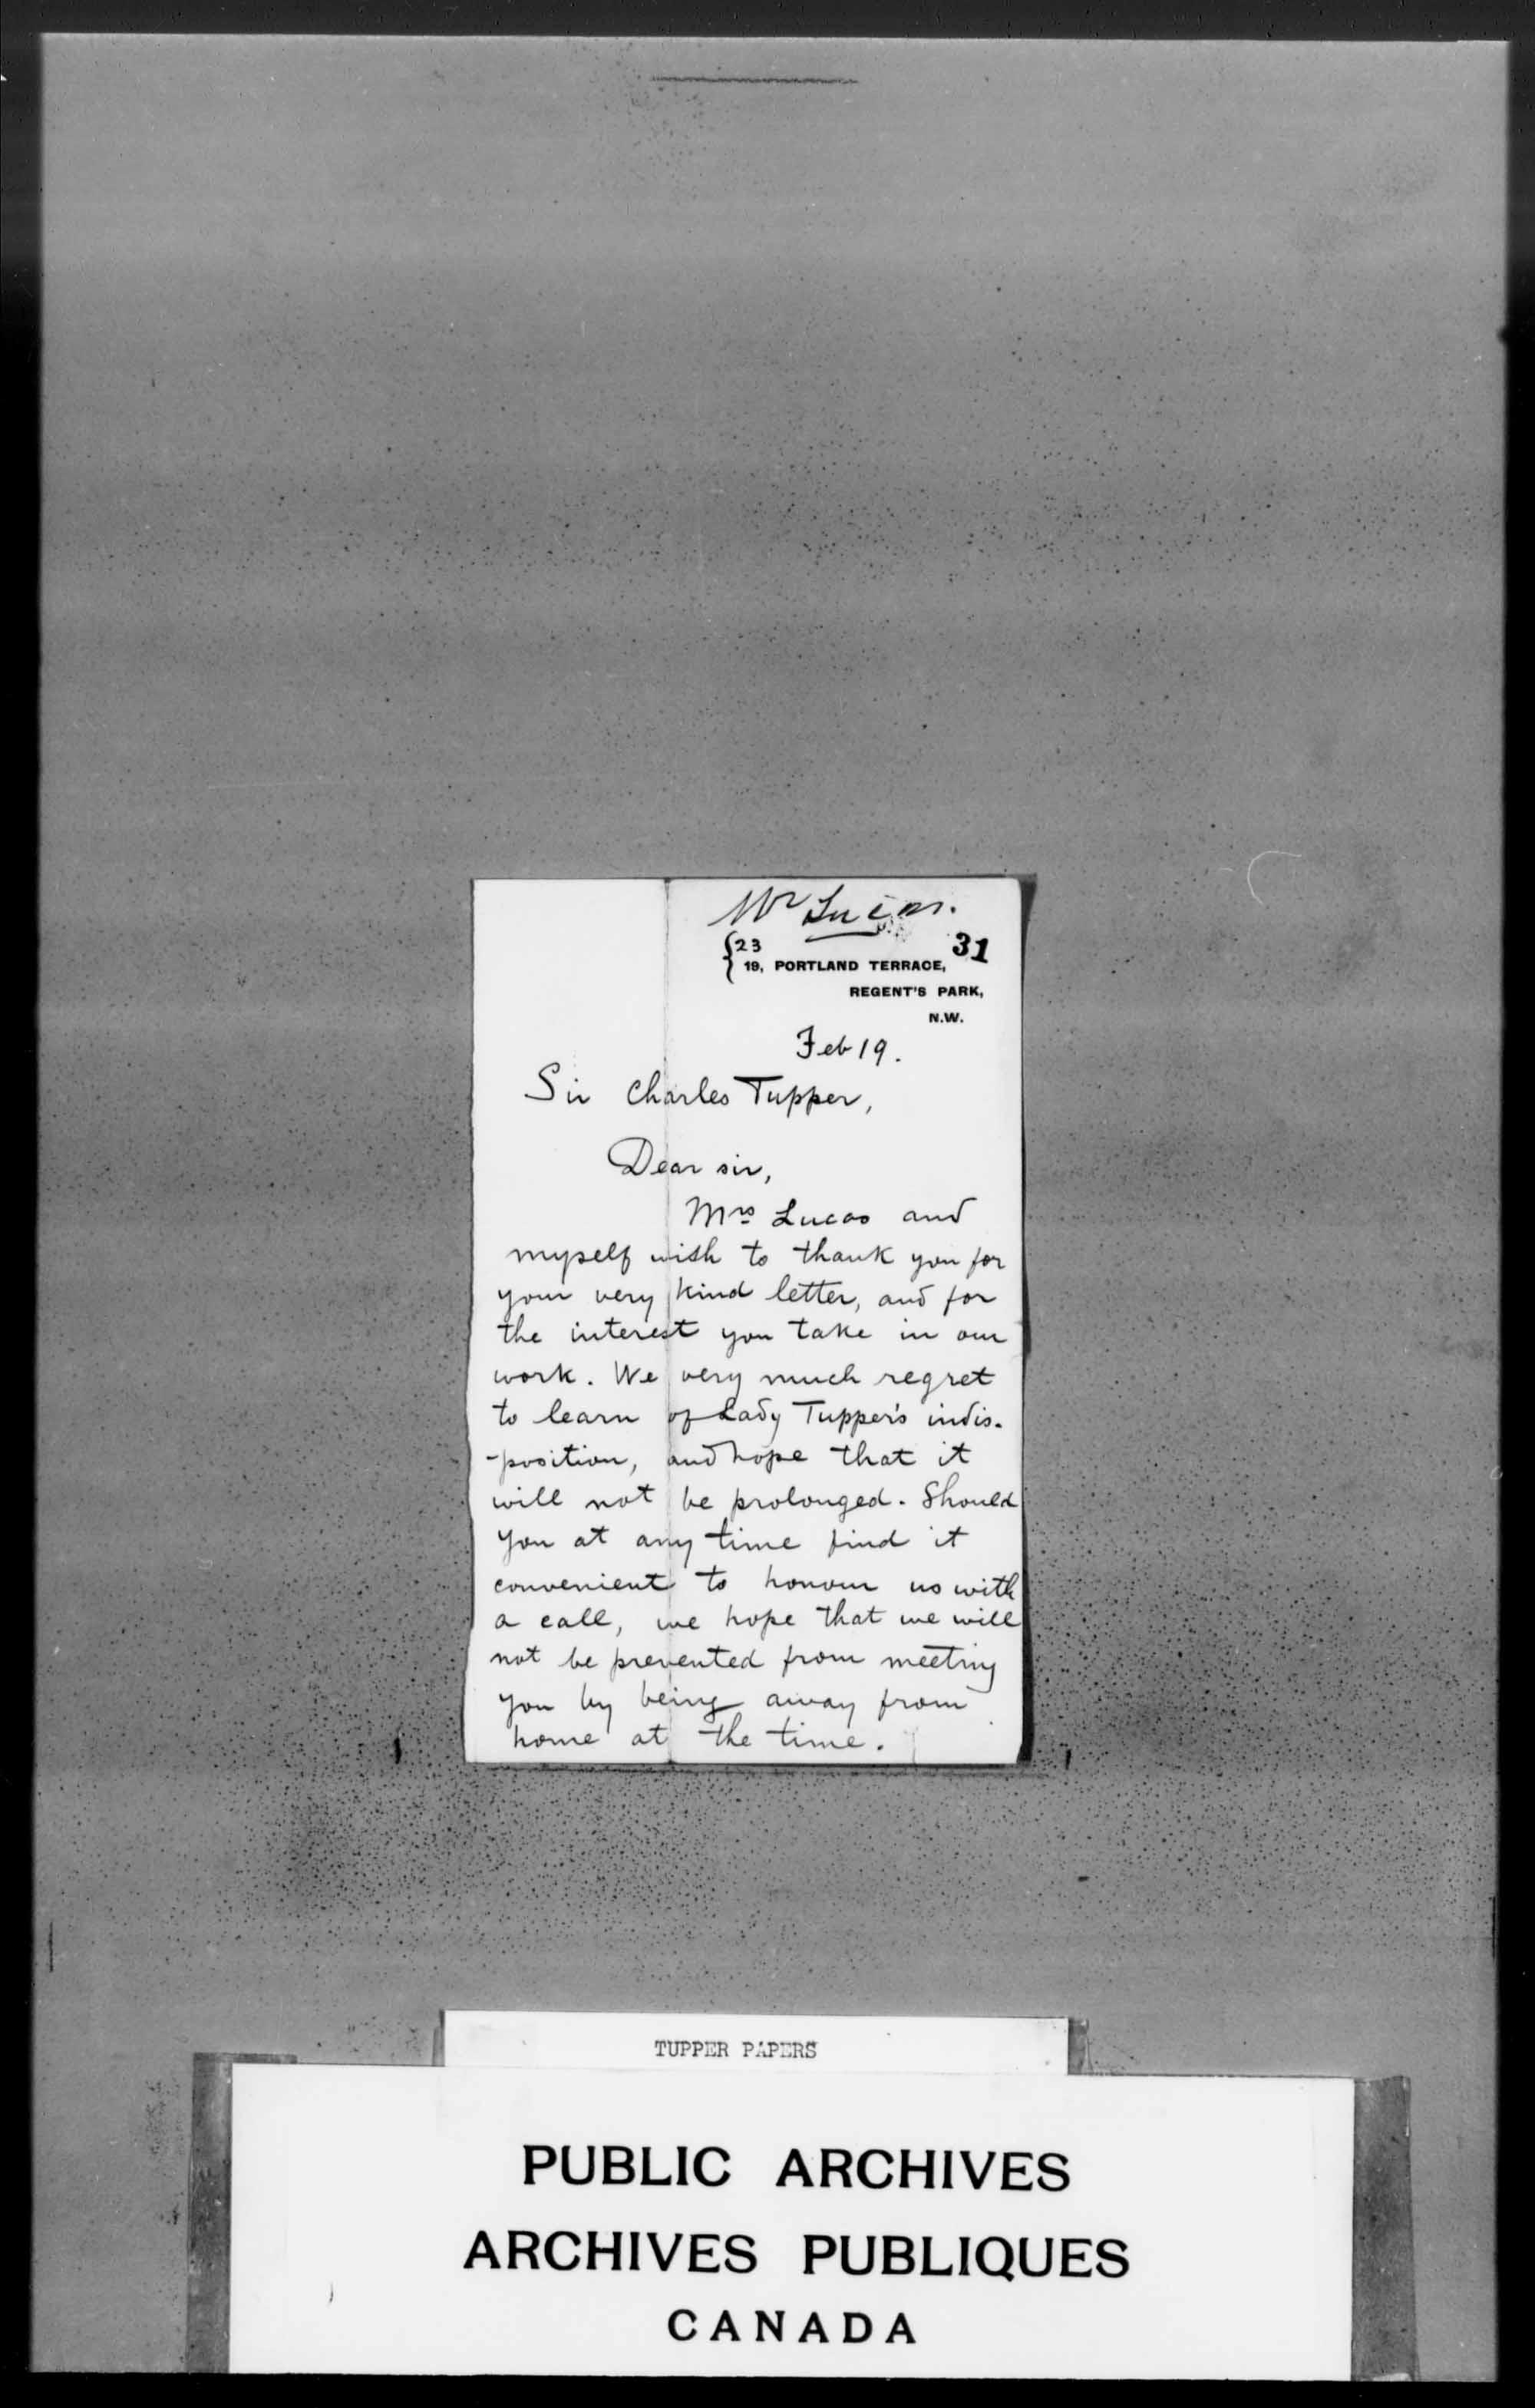 Mr Lucas.
31
{23
19, PORTLAND TERRACE,
REGENT'S PARK,
N.W.
Feb 19.
Sir Charles Tupper,
Dear sir,
Mrs Lucas and
myself wish to thank you for
your very kind letter, and for
the interest you take in our
work. We very much regret
to learn of Lady Tupper's indis-
-position, and hope that it
will not be prolonged. Should
you at any time find it
convenient to honour us with
a call, we hope that we will
not be prevented from meeting
you by being away from
home at the time.
TUPPER PAPERS
PUBLIC ARCHIVES
ARCHIVES PUBLIQUES
CANADA